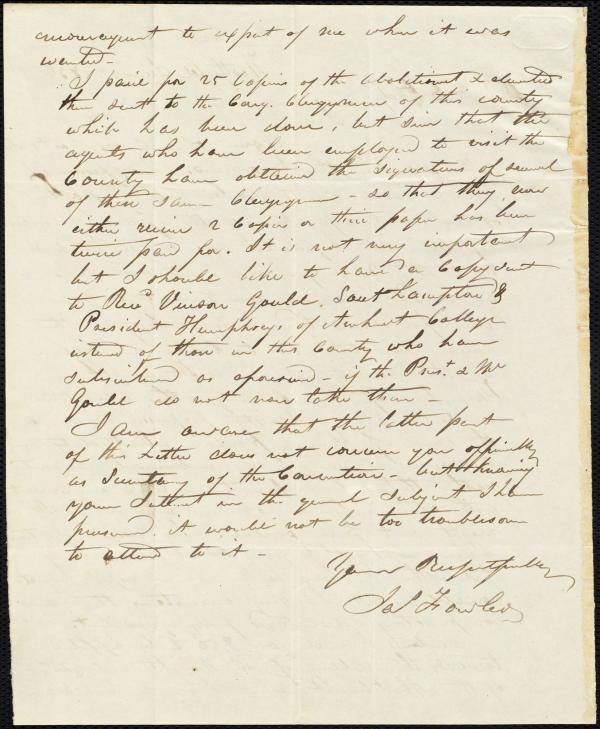 encouragement to expect of me when it was
wanted -
I paid for 25 Copies of the Abolitionist & directed
them sent to the Cong. Clergymen of this county
which has been done, but since that the
agents who have been employed to visit the
County have obtained the signatures of several
of these same Clergymen - so that they now
either receive 2 Copies or their paper has been
twice paid for. It is not very important
but I should like to have a Copy sent
to Revd Vinson Gould. Southampton &
President Humphreys of Amherst College
instead of those in this County who have
subscribed as aforesaid - if the Prest. & Mr
Gould do not now take them -
I am aware that the latter part
of this Letter does not concern you officially
as Secretary of the Convention - but knowing
your Interest in the general subject I have
presumed it would not be too troublesome
to attend to it -
Yours Respectfully
Jas Fowler